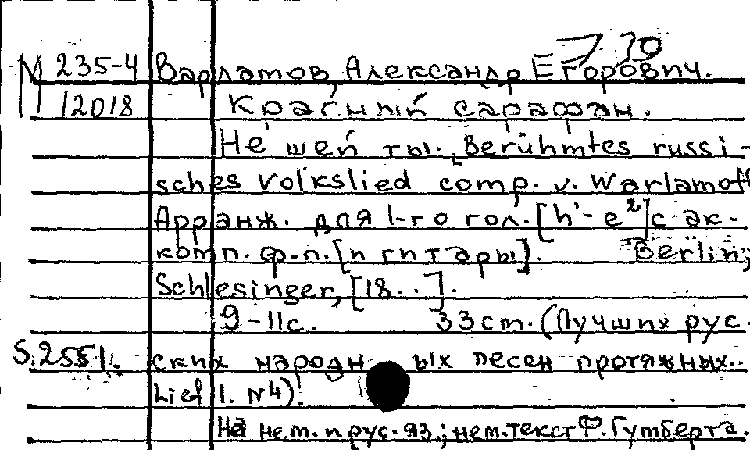 7 30
М 235-4 Варламов, Александр Егорович.
12018 Красный сарафан.
Не шей ты. Berühmtes russi-
sches Volkslied comp. v. Warlamoff
Арранж. для 1-го гол. [h'-e²] с ак-
комп. ф-п. [и гитары]. Berlin,
Schlesinger, [18..].
9-11с. 33cm. (Лучших рус.
S.2551. ских народн ых песен протяжных.
Lief 1. N4).
На нем. и рус. яз.; нем. текст Ф. Гумберта.